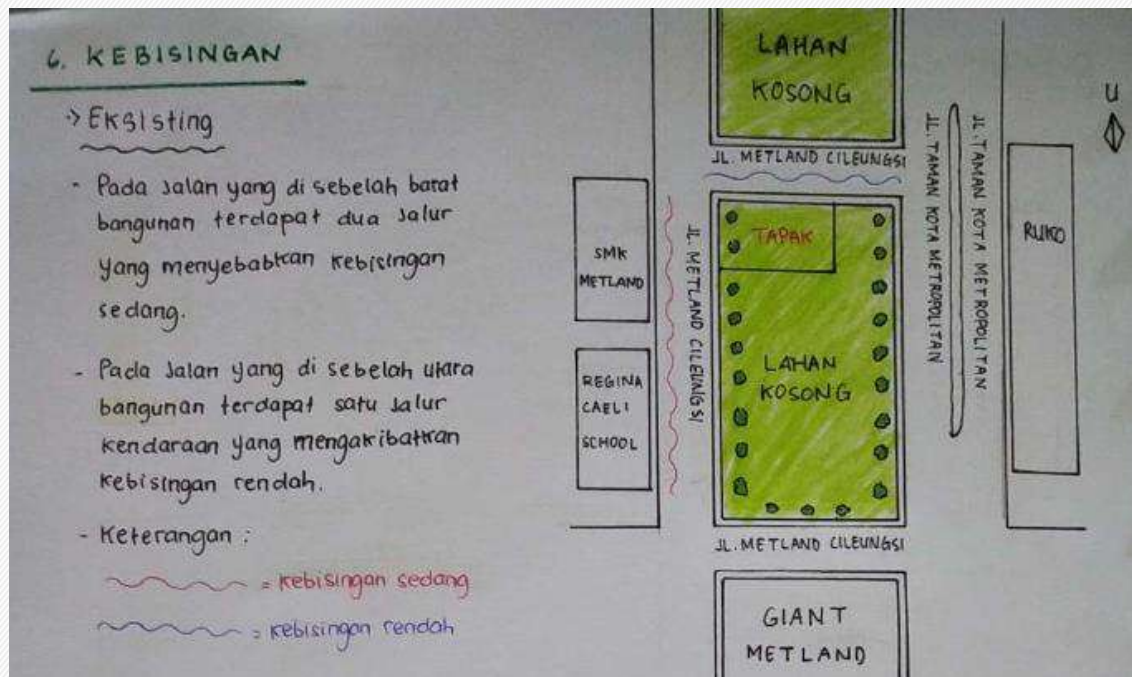 6. KEBISINGAN
-> Eksisting
- Pada Jalan yang di sebelah barat
bangunan terdapat dua Jalur
yang menyebabkan kebisingan
sedang.
- Pada Jalan yang di sebelah utara
bangunan terdapat satu Jalur
kendaraan yang mengakibatkan
kebisingan rendah.
- Keterangan :
= kebisingan sedang
= kebisingan rendah
LAHAN
KOSONG
U
JL. METLAND CILEUNGSI
SMK
METLAND
REGINA
CAELI
SCHOOL
JL. METLAND CILEUNGSI
TAPAK
LAHAN
KOSONG
JL. TAMAN KOTA METROPOLITAN
JL. TAMAN KOTA METROPOLITAN
RUKO
JL. METLAND CILEUNGSI
GIANT
METLAND